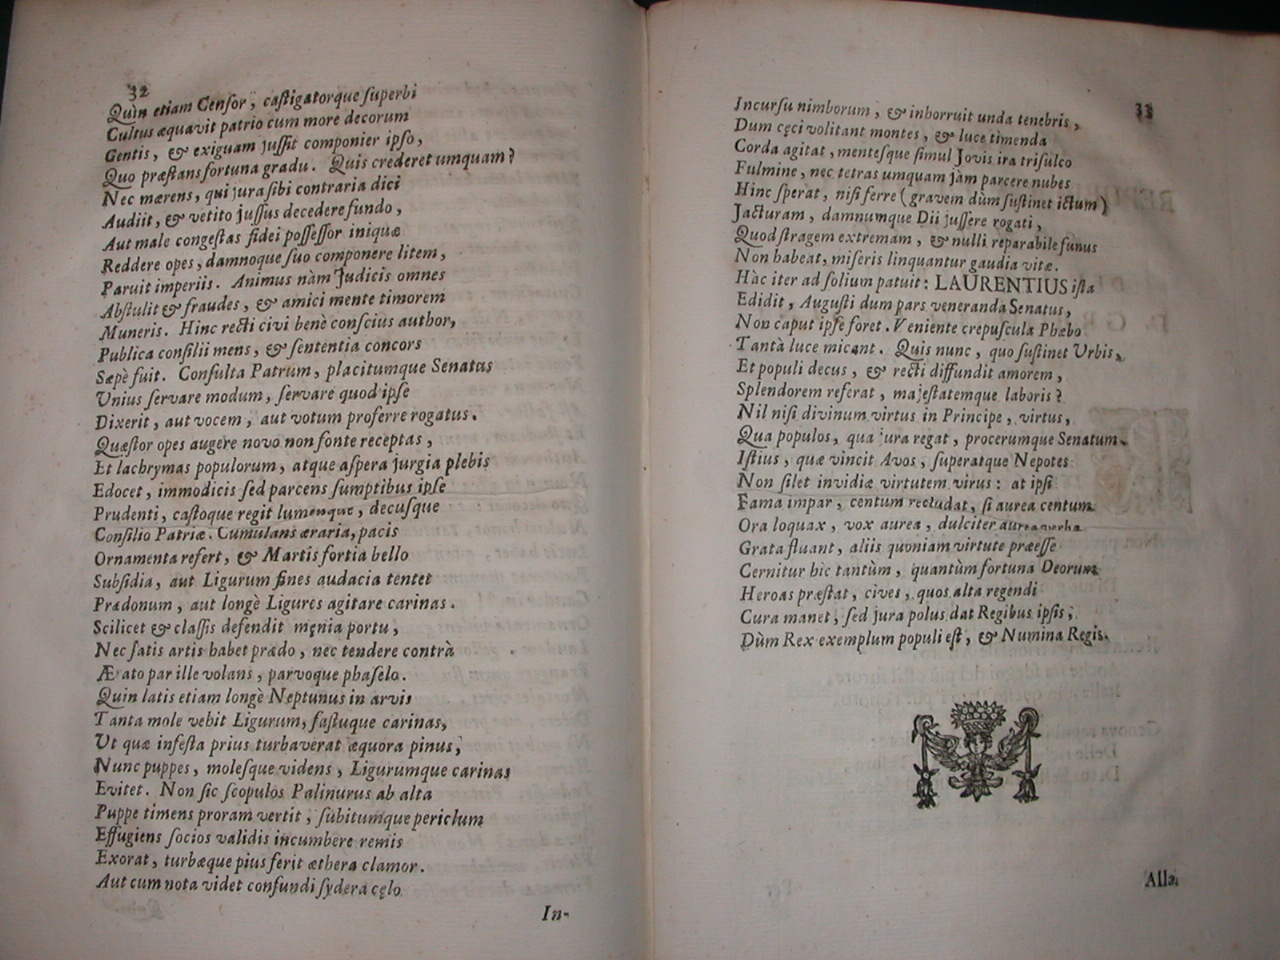 32
Quin etiam Censor, castigatorque superbi
Cultus æquavit patrio cum more decorum
Gentis, & exiguam jussit componier ipso,
Quo præstans fortuna gradu. Quis crederet umquam?
Nec mærens, qui jura sibi contraria dici
Audiit, & vetito jussus decedere fundo,
Aut male congestas fidei possessor iniquæ
Reddere opes, damnoque suo componere litem,
Paruit imperiis. Animus nàm Judicis omnes
Abstulit & fraudes, & amici mente timorem
Muneris. Hinc recti civi benè conscius author,
Publica consilii mens, & sententia concors
Sæpè fuit. Consulta Patrum, placitumque Senatus
Unius servare modum, servare quod ipse
Dixerit, aut vocem, aut votum proferre rogatus.
Quæstor opes augere novo non fonte receptas,
Et lachrymas populorum, atque aspera jurgia plebis
Edocet, immodicis sed parcens sumptibus ipse
Prudenti, castoque regit lumenque, decusque
Consilio Patriæ. Cumulans æraria, pacis
Ornamenta refert, & Martis fortia bello
Subsidia, aut Ligurum fines audacia tentet
Prædonum, aut longè Ligures agitare carinas.
Scilicet & classis defendit męnia portu,
Nec satis artis habet prædo, nec tendere contrà
Ærato par ille volans, parvoque phaselo.
Quin latis etiam longè Neptunus in arvis
Tanta mole vehit Ligurum, fastuque carinas,
Ut quæ infesta prius turbaverat æquora pinus,
Nunc puppes, molesque videns, Ligurumque carinas
Evitet. Non sic scopulos Palinurus ab alta
Puppe timens proram vertit, subitumque periclum
Effugiens socios validis incumbere remis
Exorat, turbæque pius ferit æthera clamor.
Aut cum nota videt confundi sydera cęlo
In-
33
Incursu nimborum, & inhorruit unda tenebris,
Dum cęci volitant montes, & luce timenda
Corda agitat, mentesque simul Jovis ira trisulco
Fulmine, nec tetras umquam jàm parcere nubes
Hinc sperat, nisi ferre (gravem dùm sustinet ictum)
Jacturam, damnumque Dii jussere rogati,
Quod stragem extremam, & nulli reparabile funus
Non habeat, miseris linquantur gaudia vitæ.
Hàc iter ad solium patuit: LAURENTIUS ista
Edidit, Augusti dum pars veneranda Senatus,
Non caput ipse foret. Veniente crepuscula Phæbo
Tantà luce micant. Quis nunc, quo sustinet Urbis,
Et populi decus, & recti diffundit amorem,
Splendorem referat, majestatemque laboris?
Nil nisi divinum virtus in Principe, virtus,
Qua populos, qua jura regat, procerumque Senatum.
Istius, quæ vincit Avos, superatque Nepotes
Non silet invidiæ virtutem virus: at ipsi
Fama impar, centum recludat, si aurea centum
Ora loquax, vox aurea, dulciter aurea verba
Grata fluant, aliis quoniam virtute præesse
Cernitur hic tantùm, quantùm fortuna Deorum
Heroas præstat, cives, quos alta regendi
Cura manet, sed jura polus dat Regibus ipsis,
Dùm Rex exemplum populi est, & Numina Regis.
Alla